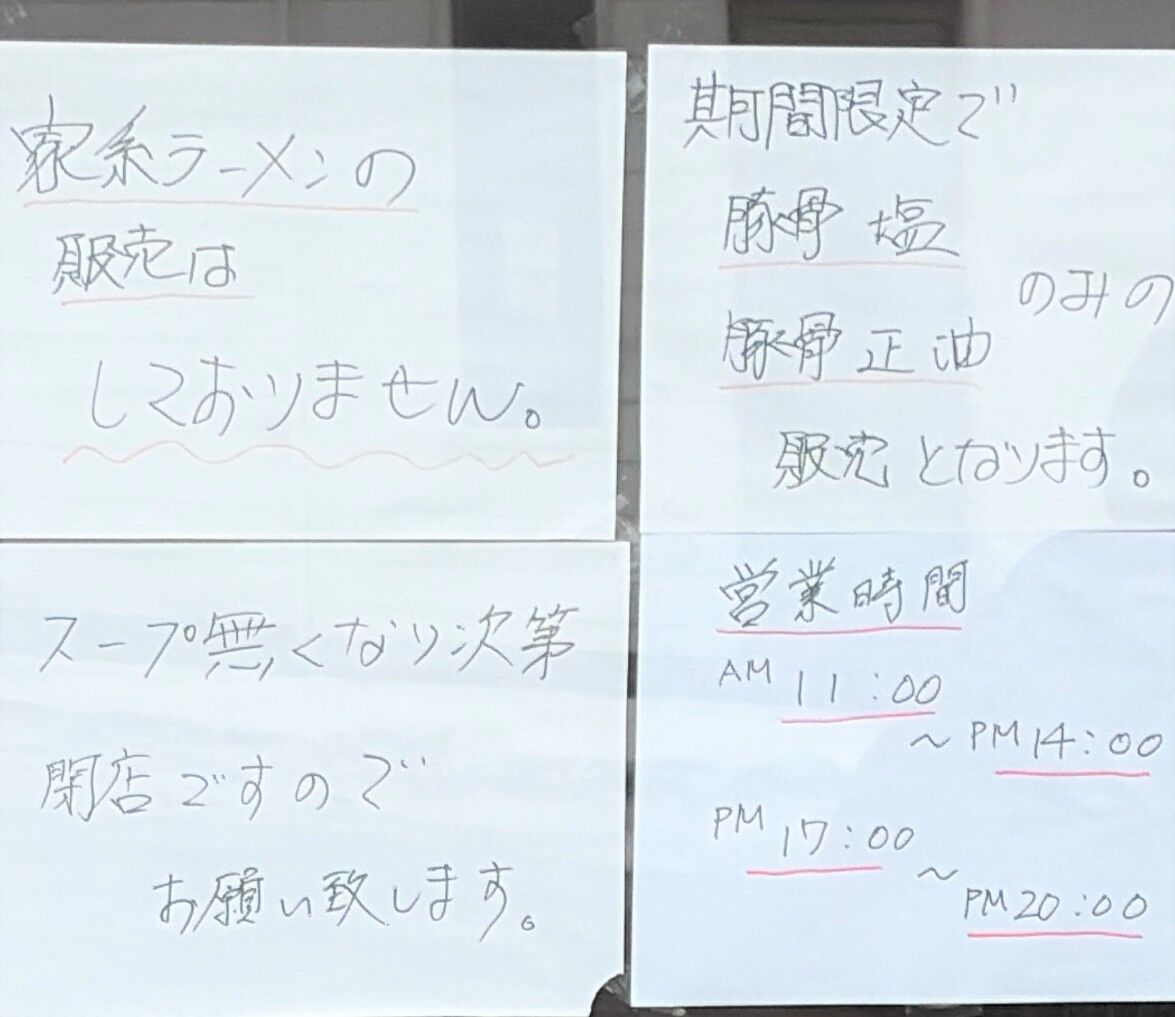 家系ラーメンの
販売は
しておりません。
期間限定で
豚骨 塩
豚骨 正油
のみの
販売となります。
スープ無くなり次第
閉店ですので
お願い致します。
営業時間
AM 11:00
～PM14:00
PM 17:00
～PM20:00